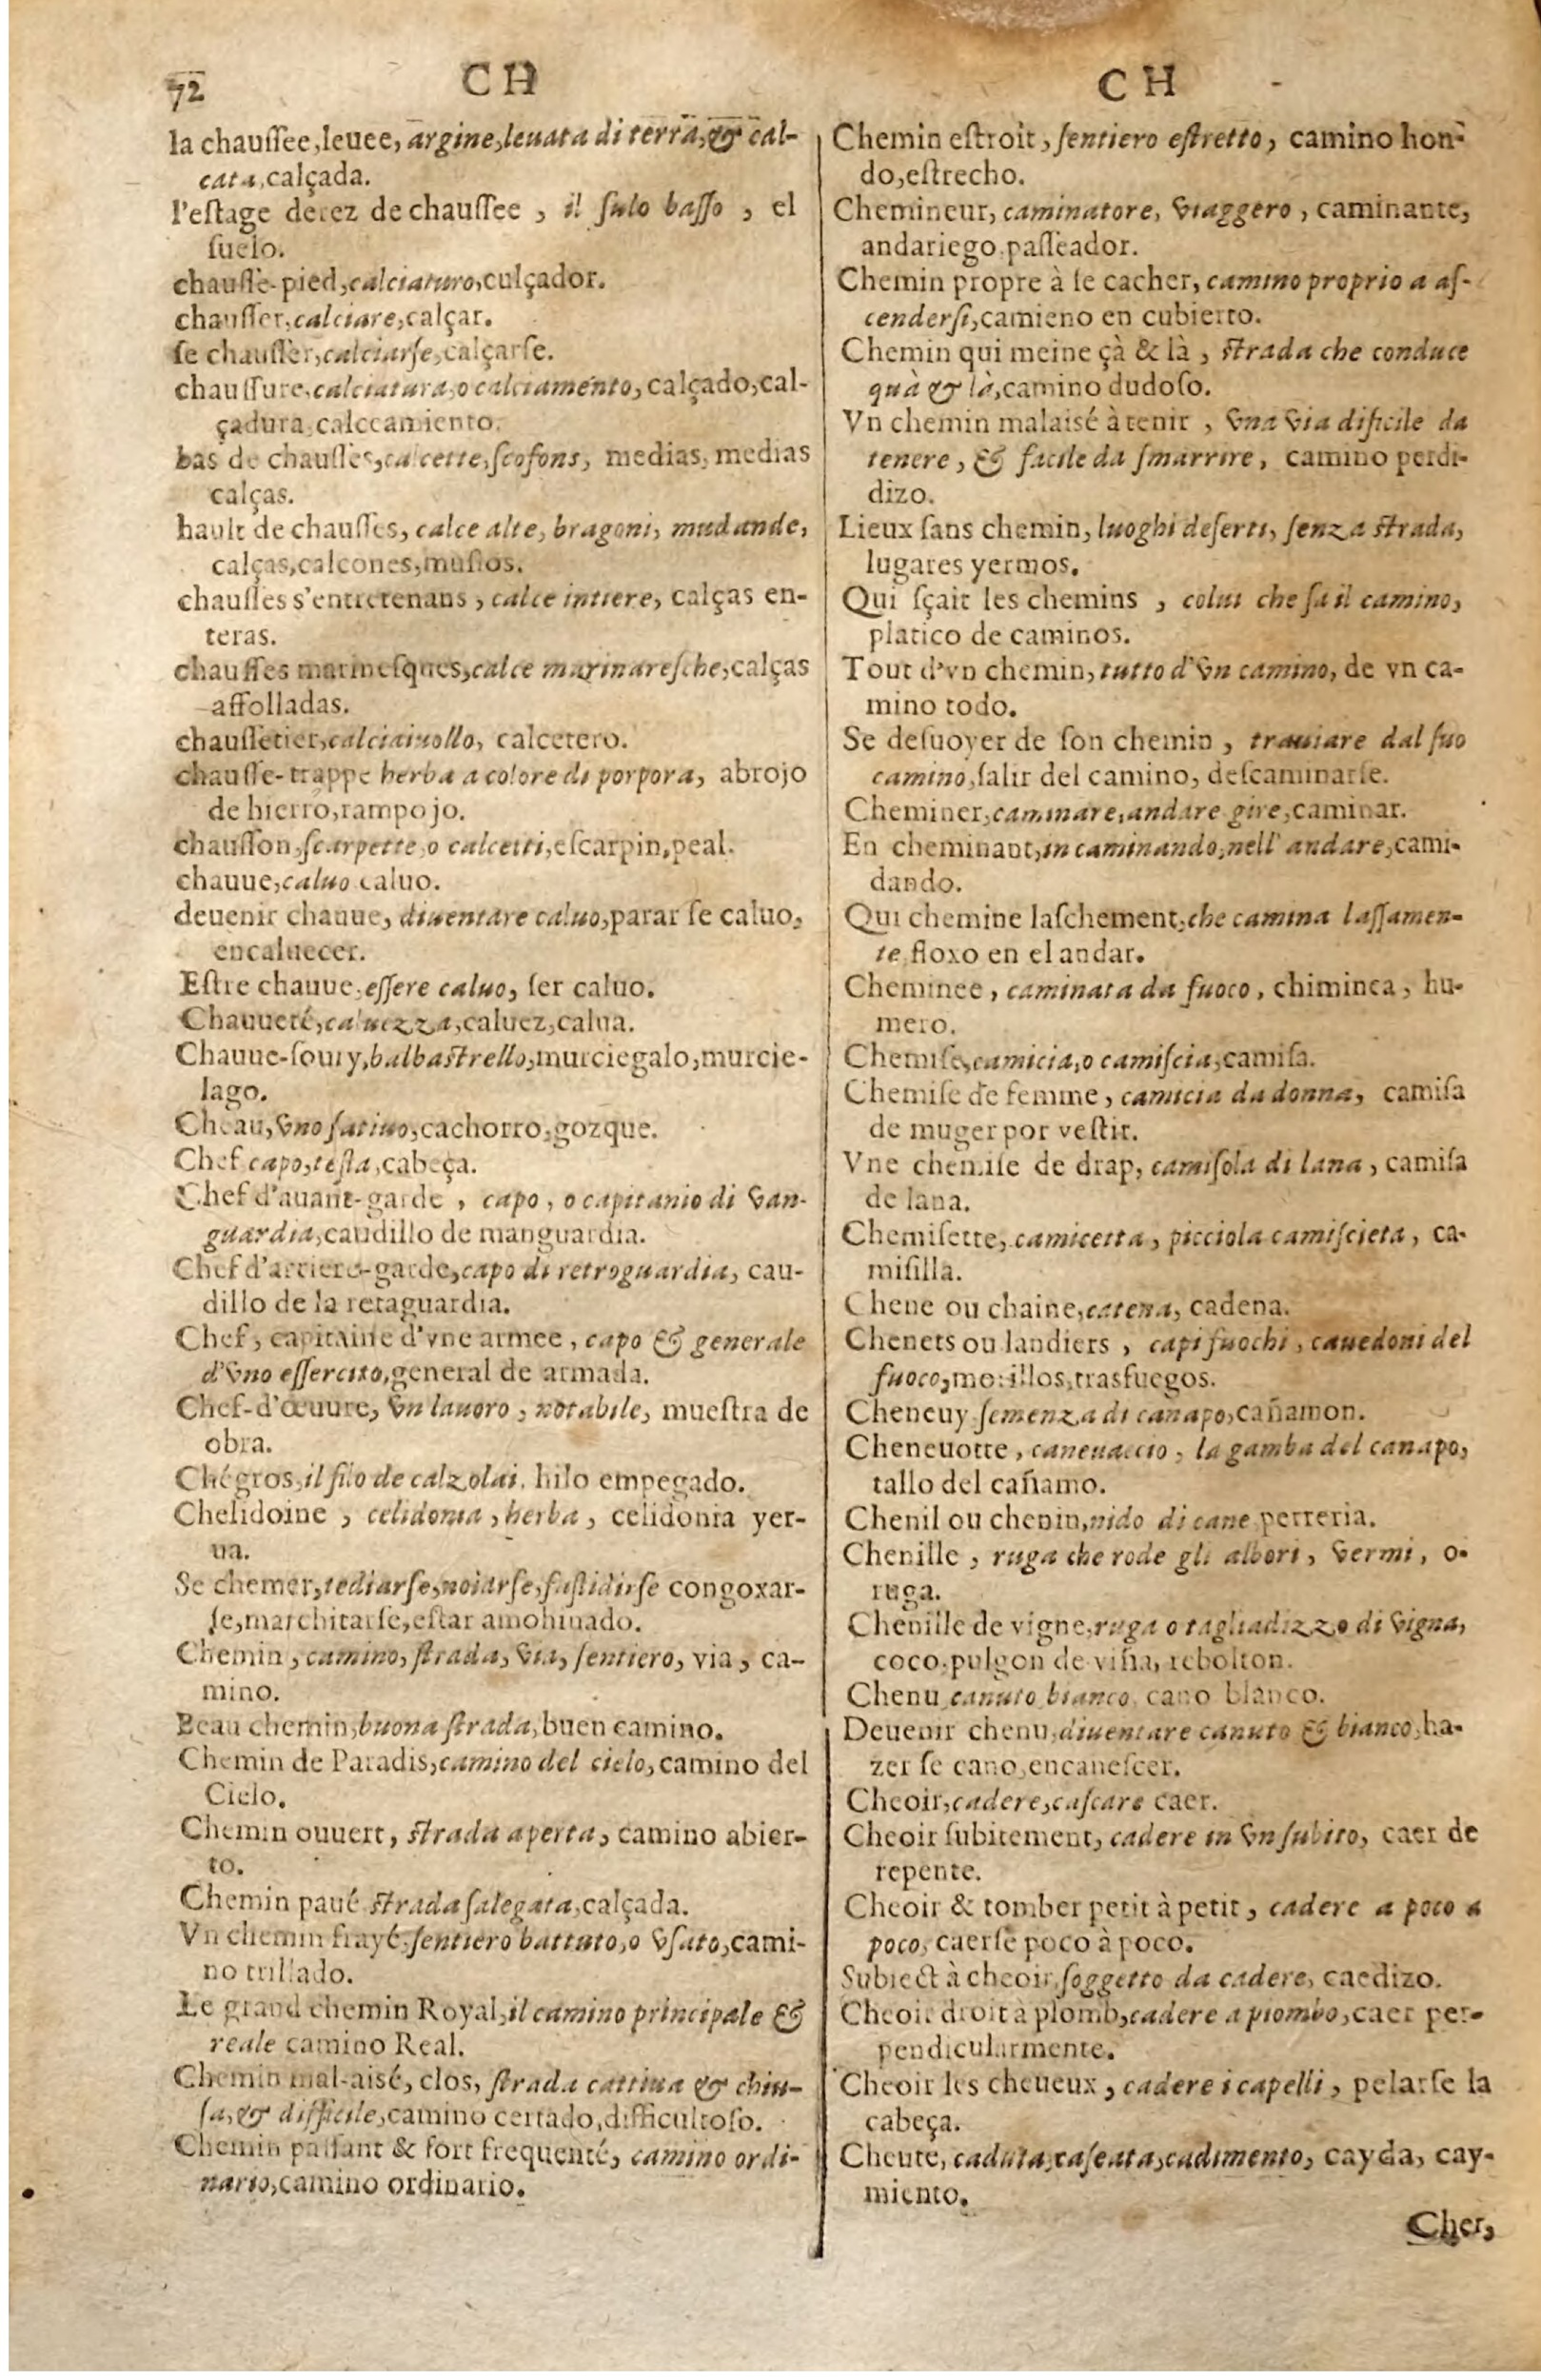 72
CH
la chauſſee,leuee, argine,leuata di terra,& cal-
cata,calçada.
l'eſtage derez de chauſſee , il ſulo baſſo , el
ſuelo.
chauſſe-pied,calciaturo,culçador.
chauſſer,calciare,calçar.
ſe chauſſer,calciarſe,calçarſe.
chauſſure,calciatura,o calciamento,calçado,cal-
çadura,calccamiento.
bas de chauſſes,calcette,ſcofons, medias, medias
calças.
hault de chauſſes, calce alte, bragoni, mudande,
calças,calcones,muſlos.
chauſſes s'entretenans , calce intiere, calças en-
teras.
chauſſes marineſques,calce marinareſche,calças
affolladas.
chauſſetier,calciaiuollo, calcetero.
chauſſe-trappe herba a colore di porpora, abrojo
de hierro,rampojo.
chauſſon,ſcarpette,o calcetti,eſcarpin,peal.
chauue,caluo caluo.
deuenir chauue, diuentare caluo,parar ſe caluo,
encaluecer.
Eſtre chauue,eſſere caluo, ſer caluo.
Chauueté,caluezza,caluez,calua.
Chauue-ſoury,balbaſtrello,murciegalo,murcie-
lago.
Cheau,vno ſatiuo,cachorro,gozque.
Chef capo,teſta,cabeça.
Chef d'auant-garde , capo , o capitanio di van-
guardia,caudillo de manguardia.
Chef d'arriere-garde,capo di retroguardia, cau-
dillo de la retaguardia.
Chef, capitaine d'vne armee , capo & generale
d'vno eſſercito,general de armada.
Chef-d'œuure, vn lauoro , notabile, mueſtra de
obra.
Chégros,il filo de calzolai, hilo empegado.
Chelidoine , celidonia , herba , celidonia yer-
ua.
Se chemer,tediarſe,noiarſe,faſtidirſe congoxar-
ſe,marchitarſe,eſtar amohinado.
Chemin, camino, ſtrada, via, ſentiero, via , ca-
mino.
Beau chemin,buona ſtrada,buen camino.
Chemin de Paradis,camino del cielo,camino del
Cielo.
Chemin ouuert, ſtrada aperta, camino abier-
to.
Chemin paué ſtrada ſalegata,calçada.
Vn chemin frayé,ſentiero battuto,o vſato,cami-
no trillado.
Le grand chemin Royal,il camino principale &
reale camino Real.
Chemin mal-aisé, clos, ſtrada cattiua & chiu-
ſa,& difficile,camino cerrado,difficultoſo.
Chemin paſſant & fort frequenté, camino ordi-
nario,camino ordinario.
CH
Chemin eſtroit, ſentiero eſtretto, camino hon-
do,eſtrecho.
Chemineur, caminatore, viaggero , caminante,
andariego.paſſeador.
Chemin propre à ſe cacher, camino proprio a aſ-
cenderſi,camieno en cubierto.
Chemin qui meine çà & là , ſtrada che conduce
quà & là,camino dudoſo.
Vn chemin malaisé à tenir , vna via dificile da
tenere , & facile da ſmarrire, camino perdi-
dizo.
Lieux ſans chemin, luoghi deſerti, ſenza ſtrada,
lugares yermos.
Qui ſçait les chemins , colui che ſa il camino,
platico de caminos.
Tout d'vn chemin, tutto d'vn camino, de vn ca-
mino todo.
Se deſuoyer de ſon chemin , trauiare dal ſuo
camino,ſalir del camino, deſcaminarſe.
Cheminer,caminare,andare gire,caminar.
En cheminant,in caminando,nell' andare,cami-
dando.
Qui chemine laſchement,che camina laſſamen-
te floxo en el andar.
Cheminee , caminata da fuoco , chiminea , hu-
mero.
Chemiſe,camicia,o camiſcia,camiſa.
Chemiſe de femme, camicia da donna, camiſa
de muger por veſtir.
Vne chemiſe de drap, camiſola di lana , camiſa
de lana.
Chemiſette, camicetta, picciola camiſcieta , ca-
miſilla.
Chene ou chaine,catena, cadena.
Chenets ou landiers , capi fuochi , cauedoni del
fuoco,morillos,trasfuegos.
Cheneuy ſemenza di canapo,cañamon.
Cheneuotte, caneuaccio, la gamba del canapo,
tallo del cañamo.
Chenil ou chenin,nido di cane perreria.
Chenille , ruga che rode gli albori , vermi , o-
ruga.
Chenille de vigne,ruga o tagliadizzo di vigna,
coco,pulgon de viña, rebolton.
Chenu canuto bianco, cano blanco.
Deuenir chenu,diuentare canuto & bianco,ha-
zer ſe cano,encaneſcer.
Cheoir,cadere,caſcare caer.
Cheoir ſubitement, cadere in vn ſubito, caer de
repente.
Cheoir & tomber petit à petit , cadere a poco a
poco, caerſe poco à poco.
Subiect à cheoir,ſoggetto da cadere, caedizo.
Cheoir droit à plomb,cadere a piombo,caer per-
pendicularmente.
Cheoir les cheueux , cadere i capelli , pelarſe la
cabeça.
Cheute, caduta,caſeata,cadimento, cayda, cay-
miento.
Cher,